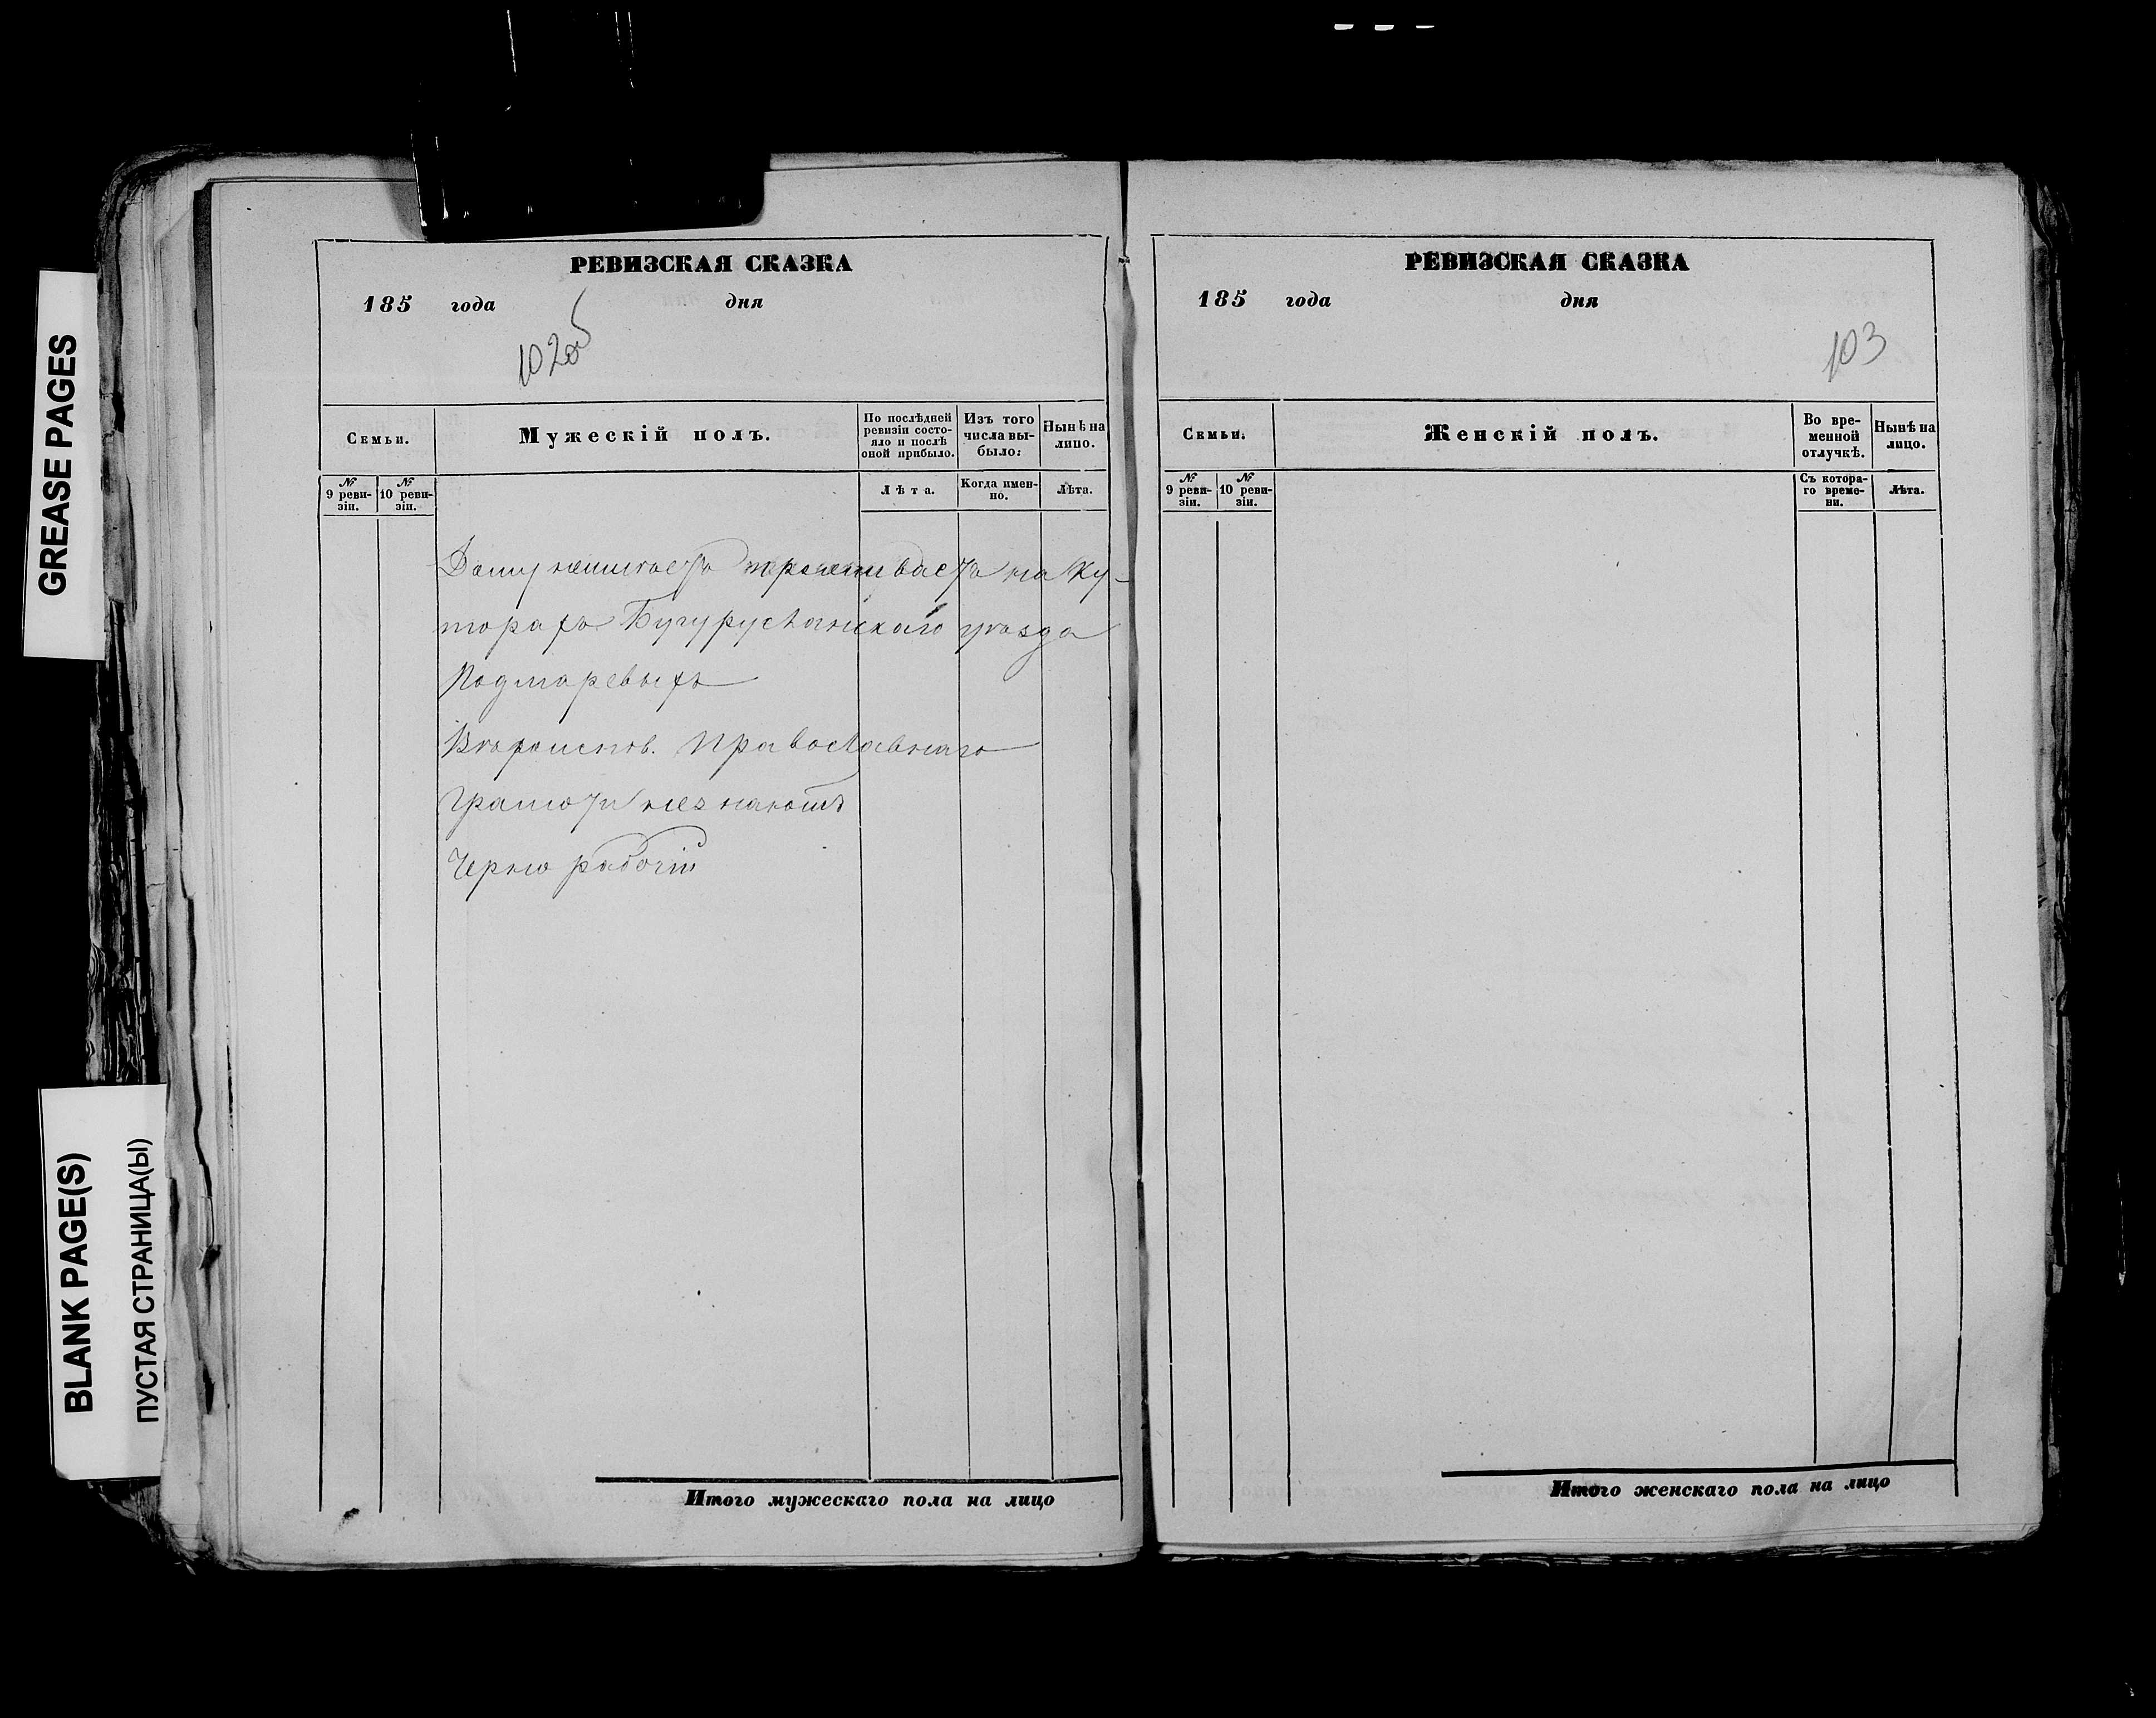 GREASE PAGES
BLANK PAGE(S)
ПУСТАЯ СТРАНИЦА(Ы)
РЕВИЗСКАЯ СКАЗКА
185 года дня
102об
Семьи.
Мужескій полъ.
По послѣдней ревизіи состо-
яло и послѣ
оной прибыло.
Изъ того
числа вы-
было:
Нынѣ на
лицо.
№
9 реви-
зіи.
№
10 реви-
зіи.
Лѣта.
Когда имен-
но.
Лѣта.
Дому неимѣетъ проживаетъ на Ху-
торахъ Бугурусланскаго уѣзда
Вѣроиспов. Православнаго
Грамоти незнаютъ
Черно рабочій
Итого мужескаго пола на лицо
РЕВИЗСКАЯ СКАЗКА
185 года дня
103
Семьи.
Женскій полъ.
Во вре-
менной
отлучкѣ.
Нынѣ на
лицо.
№
9 реви-
зіи.
№
10 реви-
зіи.
Съ котора-
го време-
ни.
Лѣта.
Итого женскаго пола на лицо